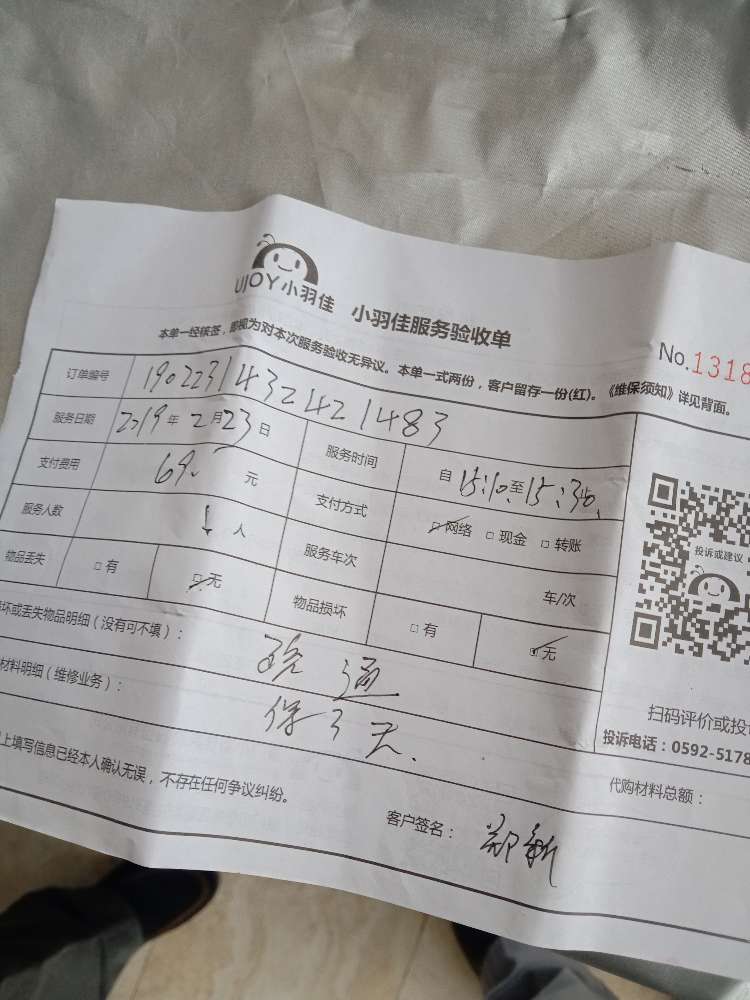 UJOY小羽佳 小羽佳服务验收单
No.1318
本单一经核签，即视为对本次服务验收无异议。本单一式两份，客户留存一份(红)。《维保须知》详见背面。
订单编号 1902231432421483
服务日期 2019年2月23日 服务时间 自15:10至15:36
支付费用 69.元 支付方式 网络 现金 转账
服务人数 1人 服务车次 车/次
物品丢失 有 无 物品损坏 有 无
坏或丢失物品明细（没有可不填）：
材料明细（维修业务）：
疏通
保3天.
投诉或建议
扫码评价或投
投诉电话：0592-5178
代购材料总额：
上填写信息已经本人确认无误，不存在任何争议纠纷。
客户签名：郑新